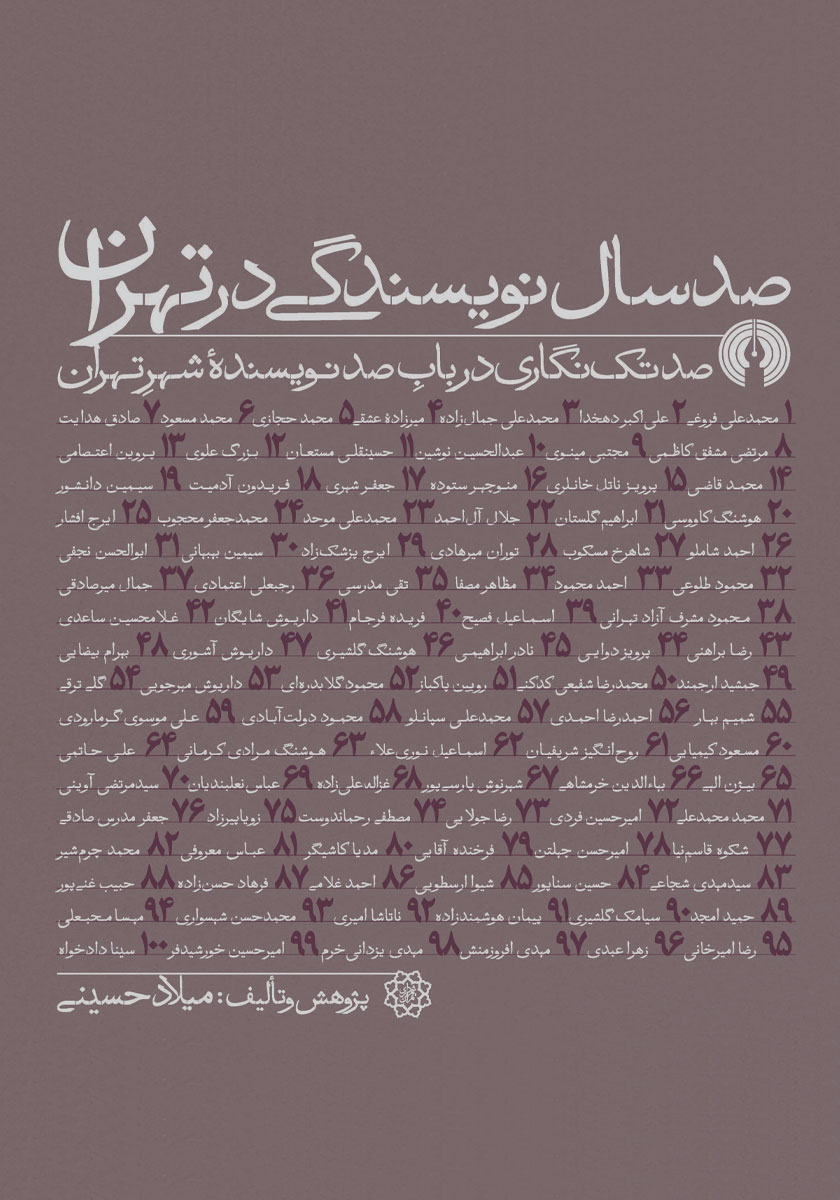 صد سال نویسندگی در تهران
صد تک‌نگاری در بابِ صد نویسندهٔ شهرِ تهران
۱ محمدعلی فروغی ۲ علی‌اکبر دهخدا ۳ محمدعلی جمال‌زاده ۴ میرزادهٔ عشقی ۵ محمد حجازی ۶ محمد مسعود ۷ صادق هدایت
۸ مرتضی مشفق کاظمی ۹ مجتبی مینوی ۱۰ عبدالحسین نوشین ۱۱ حسینقلی مستعان ۱۲ بزرگ علوی ۱۳ پروین اعتصامی
۱۴ محمد قاضی ۱۵ پرویز ناتل خانلری ۱۶ منوچهر ستوده ۱۷ جعفر شهری ۱۸ فریدون آدمیت ۱۹ سیمین دانشور
۲۰ هوشنگ کاووسی ۲۱ ابراهیم گلستان ۲۲ جلال آل‌احمد ۲۳ محمدعلی موحد ۲۴ محمدجعفر محجوب ۲۵ ایرج افشار
۲۶ احمد شاملو ۲۷ شاهرخ مسکوب ۲۸ توران میرهادی ۲۹ ایرج پزشک‌زاد ۳۰ سیمین بهبهانی ۳۱ ابوالحسن نجفی
۳۲ محمود طلوعی ۳۳ احمد محمود ۳۴ مظاهر مصفا ۳۵ تقی مدرسی ۳۶ رجبعلی اعتمادی ۳۷ جمال میرصادقی
۳۸ محمود مشرف آزاد تهرانی ۳۹ اسماعیل فصیح ۴۰ فریده فرجام ۴۱ داریوش شایگان ۴۲ غلامحسین ساعدی
۴۳ رضا براهنی ۴۴ پرویز دوایی ۴۵ نادر ابراهیمی ۴۶ هوشنگ گلشیری ۴۷ داریوش آشوری ۴۸ بهرام بیضایی
۴۹ جمشید ارجمند ۵۰ محمدرضا شفیعی کدکنی ۵۱ رویین پاکباز ۵۲ محمود گلابدره‌ای ۵۳ داریوش مهرجویی ۵۴ گلی ترقی
۵۵ شمیم بهار ۵۶ احمدرضا احمدی ۵۷ محمدعلی سپانلو ۵۸ محمود دولت‌آبادی ۵۹ علی موسوی گرمارودی
۶۰ مسعود کیمیایی ۶۱ روح‌انگیز شریفیان ۶۲ اسماعیل نوری‌علاء ۶۳ هوشنگ مرادی کرمانی ۶۴ علی حاتمی
۶۵ بیژن الهی ۶۶ بهاءالدین خرمشاهی ۶۷ شهرنوش پارسی‌پور ۶۸ غزاله علی‌زاده ۶۹ عباس نعلبندیان ۷۰ سیدمرتضی آوینی
۷۱ محمد محمدعلی ۷۲ امیرحسین فردی ۷۳ رضا جولایی ۷۴ مصطفی رحماندوست ۷۵ زویا پیرزاد ۷۶ جعفر مدرس صادقی
۷۷ شکوه قاسم‌نیا ۷۸ امیرحسن چهلتن ۷۹ فرخنده آقایی ۸۰ مدیا کاشیگر ۸۱ عباس معروفی ۸۲ محمد چرم‌شیر
۸۳ سیدمهدی شجاعی ۸۴ حسین سناپور ۸۵ شیوا ارسطویی ۸۶ احمد غلامی ۸۷ فرهاد حسن‌زاده ۸۸ حبیب غنی‌پور
۸۹ حمید امجد ۹۰ سیامک گلشیری ۹۱ پیمان هوشمندزاده ۹۲ ناتاشا امیری ۹۳ محمدحسن شهسواری ۹۴ مهسا محبعلی
۹۵ رضا امیرخانی ۹۶ زهرا عبدی ۹۷ مهدی افروزمنش ۹۸ مهدی یزدانی خرم ۹۹ امیرحسین خورشیدفر ۱۰۰ سینا دادخواه
پژوهش و تألیف: میلاد حسینی